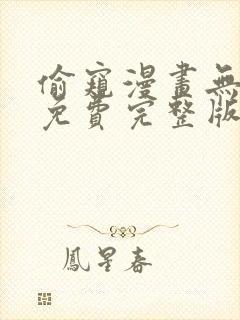 偷窺漫畫無
免費完整版
鳳星春